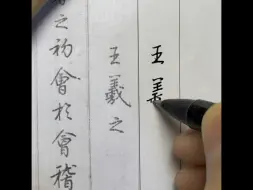 王
王羲之
之初會於會稽